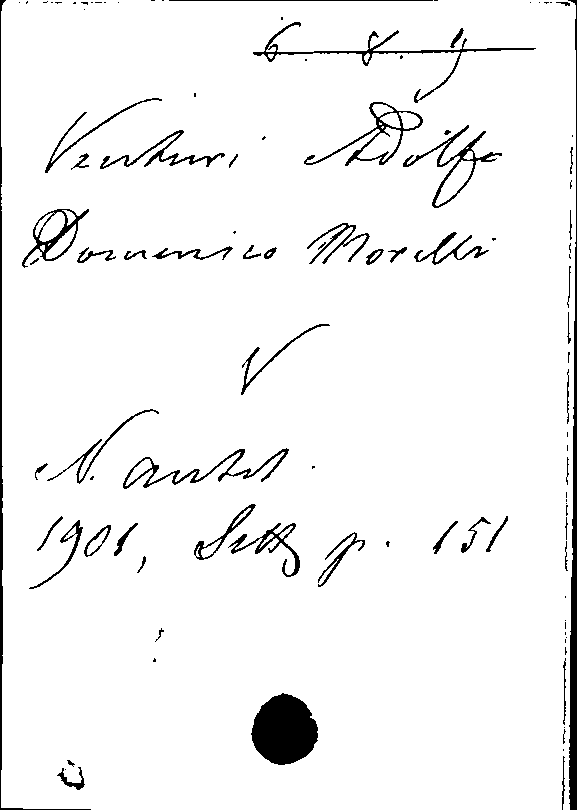 6. 8. 9
Venturi Adolfo
Domenico Morelli
V
N. antol.
1901, Sett p. 151